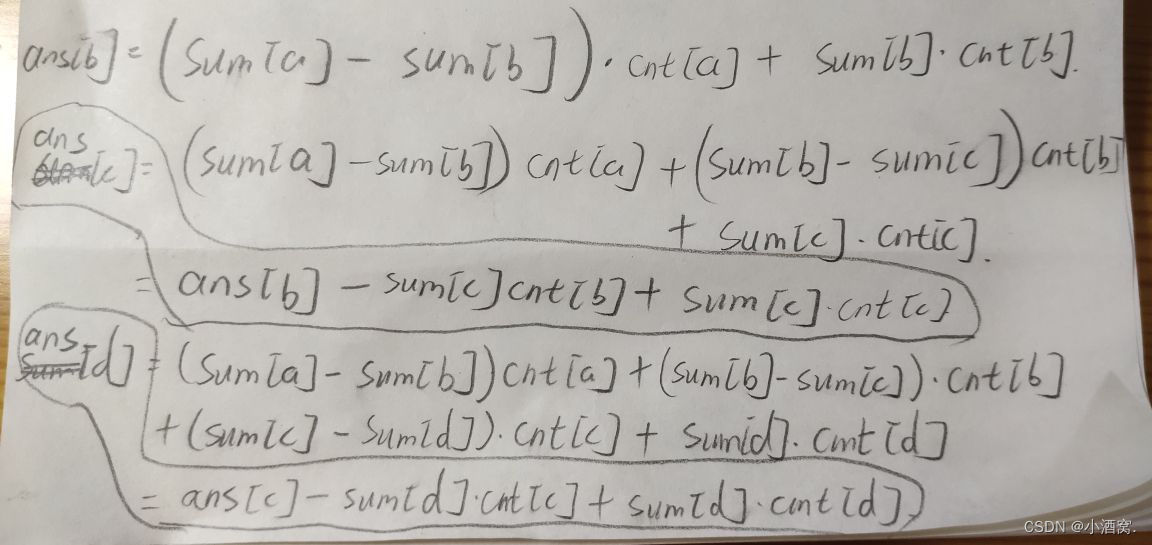 ans[b] = (sum[a] - sum[b])·cnt[a] + sum[b]·cnt[b].
ans[c] = (sum[a] - sum[b]) cnt[a] + (sum[b] - sum[c]) cnt[b]
+ sum[c].cnt[c].
= ans[b] - sum[c]cnt[b] + sum[c]·cnt[c]
ans[d] = (sum[a] - sum[b])cnt[a] + (sum[b] - sum[c])·cnt[b]
+ (sum[c] - sum[d])·cnt[c] + sum[d]·cnt[d]
= ans[c] - sum[d]·cnt[c] + sum[d]·cnt[d]
CSDN @小酒窝.